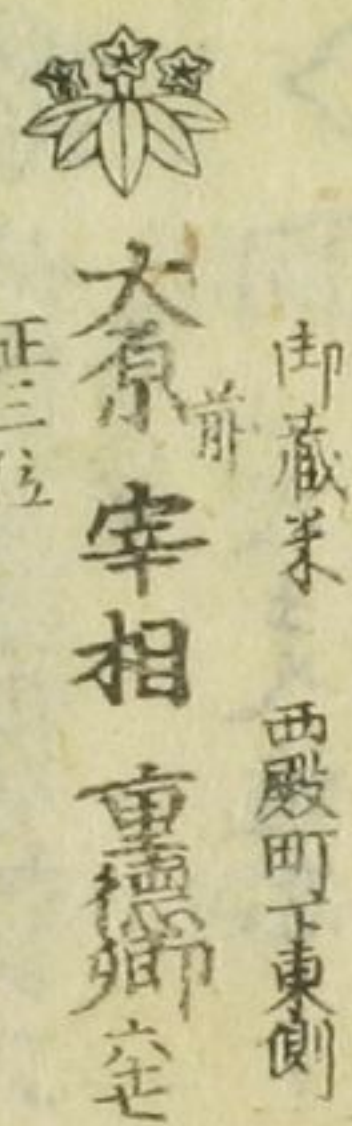 御蔵米 西殿町下東側
大原前宰相重徳卿 六十七
正三位